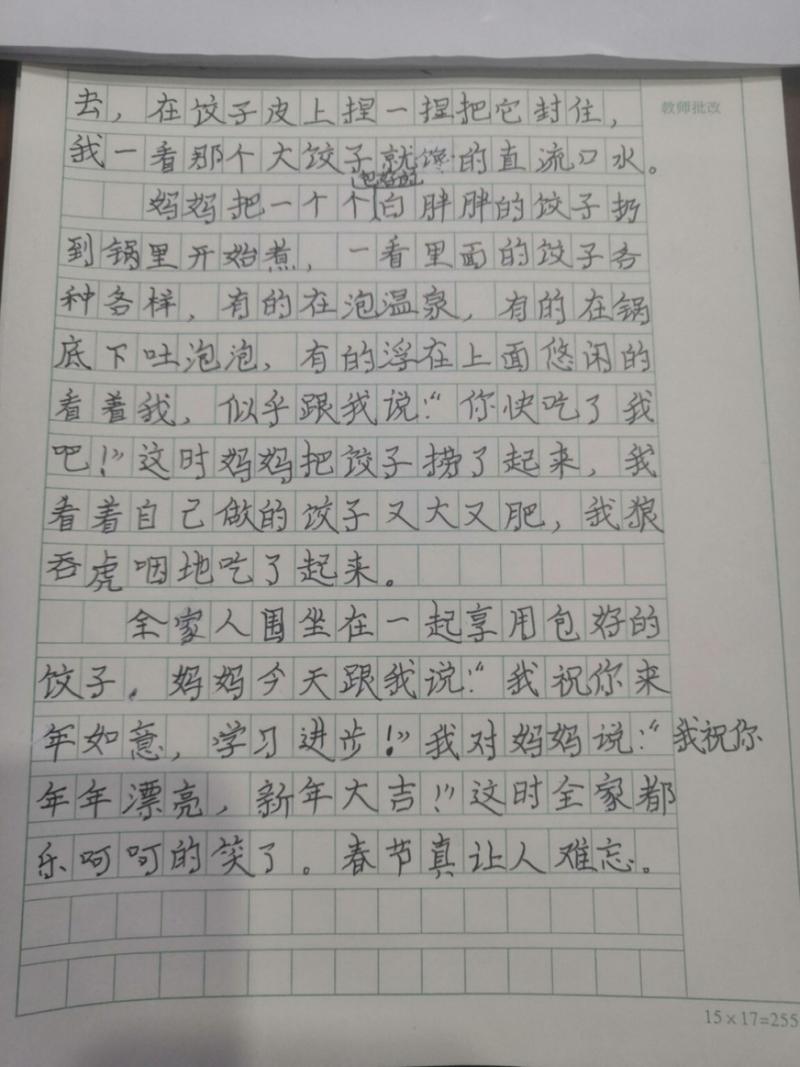 去，在饺子皮上捏一捏把它封住，
教师批改
我一看那个大饺子就馋的直流口水。
包好的
妈妈把一个个白胖胖的饺子扔
到锅里开始煮，一看里面的饺子各
种各样，有的在泡温泉，有的在锅
底下吐泡泡，有的浮在上面悠闲的
看着我，似乎跟我说：“你快吃了我
吧！”这时妈妈把饺子捞了起来，我
看着自己做的饺子又大又肥，我狼
吞虎咽地吃了起来。
全家人围坐在一起享用包好的
饺子，妈妈今天跟我说：“我祝你来
年如意，学习进步！”我对妈妈说：“我祝你
年年漂亮，新年大吉！”这时全家都
乐呵呵的笑了。春节真让人难忘。
15×17=255